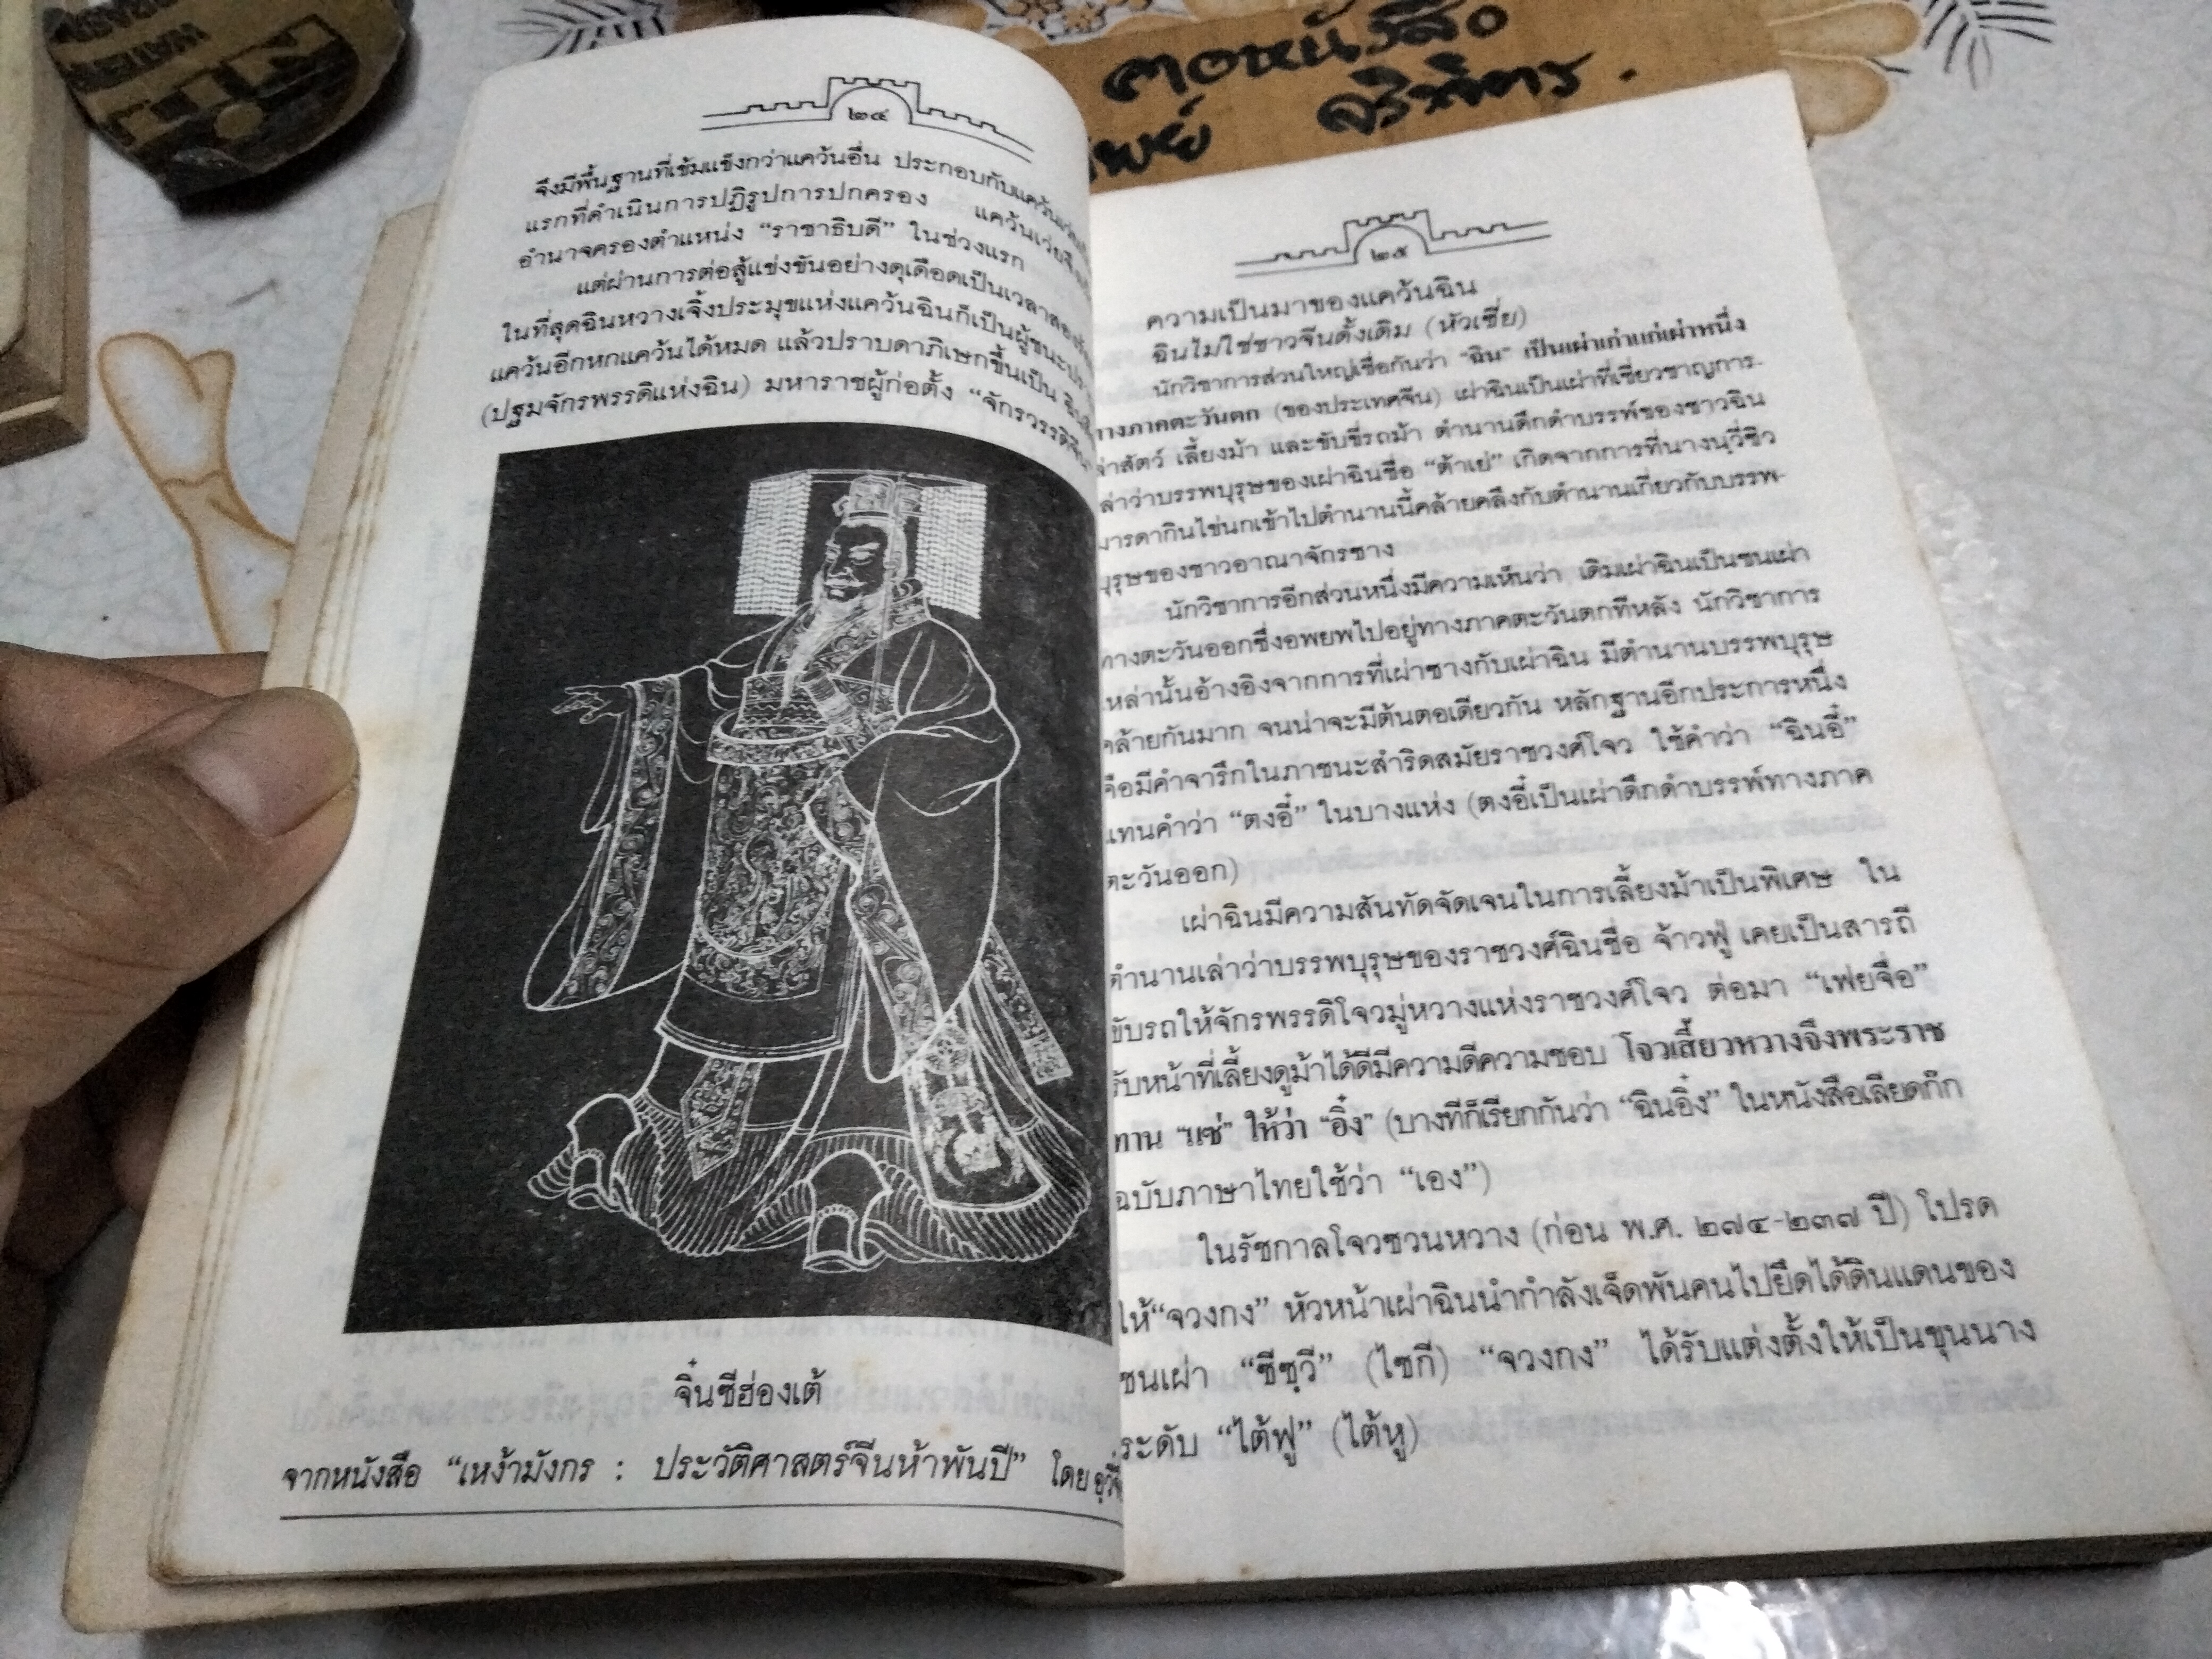 ตอหนังสือ
๒๔
จึงมีพื้นฐานที่เข้มแข็งกว่าแคว้นอื่น ประกอบกับแคว้น
แรกที่ดำเนินการปฏิรูปการปกครอง แคว้นเว่ยจึง
อำนาจครองตำแหน่ง “ราชาธิบดี” ในช่วงแรก
แต่ผ่านการต่อสู้แข่งขันอย่างดุเดือดเป็นเวลา
ในที่สุดฉินหวางเจิ้งประมุขแห่งแคว้นฉินก็เป็นผู้ชนะ
แคว้นอีกหกแคว้นได้หมด แล้วปราบดาภิเษกขึ้นเป็น
(ปฐมจักรพรรดิแห่งฉิน) มหาราชผู้ก่อตั้ง “จักรวรรดิจีน
จิ๋นซีฮ่องเต้
จากหนังสือ “เหง้ามังกร : ประวัติศาสตร์จีนห้าพันปี” โดย
๒๕
ความเป็นมาของแคว้นฉิน
ฉินไม่ใช่ชาวจีนดั้งเดิม (หัวเซี่ย)
นักวิชาการส่วนใหญ่เชื่อกันว่า “ฉิน” เป็นเผ่าเก่าแก่เผ่าหนึ่ง
ทางภาคตะวันตก (ของประเทศจีน) เผ่าฉินเป็นเผ่าที่เชี่ยวชาญการ-
ล่าสัตว์ เลี้ยงม้า และขับขี่รถม้า ตำนานดึกดำบรรพ์ของชาวฉิน
เล่าว่าบรรพบุรุษของเผ่าฉินชื่อ “ต้าเย่” เกิดจากการที่นางนวี่ซิว
มารดากินไข่นกเข้าไปตำนานนี้คล้ายคลึงกับตำนานเกี่ยวกับบรรพ-
บุรุษของชาวอาณาจักรซาง
นักวิชาการอีกส่วนหนึ่งมีความเห็นว่า เดิมเผ่าฉินเป็นชนเผ่า
ทางตะวันออกซึ่งอพยพไปอยู่ทางภาคตะวันตกทีหลัง นักวิชาการ
เหล่านั้นอ้างอิงจากการที่เผ่าซางกับเผ่าฉิน มีตำนานบรรพบุรุษ
คล้ายกันมาก จนน่าจะมีต้นตอเดียวกัน หลักฐานอีกประการหนึ่ง
คือมีคำจารึกในภาชนะสำริดสมัยราชวงศ์โจว ใช้คำว่า “ฉินอี๋”
แทนคำว่า “ตงอี๋” ในบางแห่ง (ตงอี๋เป็นเผ่าดึกดำบรรพ์ทางภาค
ตะวันออก)
เผ่าฉินมีความสันทัดจัดเจนในการเลี้ยงม้าเป็นพิเศษ ใน
ตำนานเล่าว่าบรรพบุรุษของราชวงศ์ฉินชื่อ จ้าวฟู่ เคยเป็นสารถี
ขับรถให้จักรพรรดิโจวมู่หวางแห่งราชวงศ์โจว ต่อมา “เฟยจื่อ”
รับหน้าที่เลี้ยงดูม้าได้ดีมีความดีความชอบ โจวเสี้ยวหวางจึงพระราช
ทาน “แซ่” ให้ว่า “อิ๋ง” (บางทีก็เรียกกันว่า “ฉินอิ๋ง” ในหนังสือเลียดก๊ก
ฉบับภาษาไทยใช้ว่า “เอง”)
ในรัชกาลโจวซวนหวาง (ก่อน พ.ศ. ๒๘๔-๒๓๗ ปี) โปรด
ให้“จวงกง” หัวหน้าเผ่าฉินนำกำลังเจ็ดพันคนไปยึดได้ดินแดนของ
ชนเผ่า “ซีซฺวี” (ไซกี) “จวงกง” ได้รับแต่งตั้งให้เป็นขุนนาง
ระดับ “ไต้ฟู” (ไต้หู)